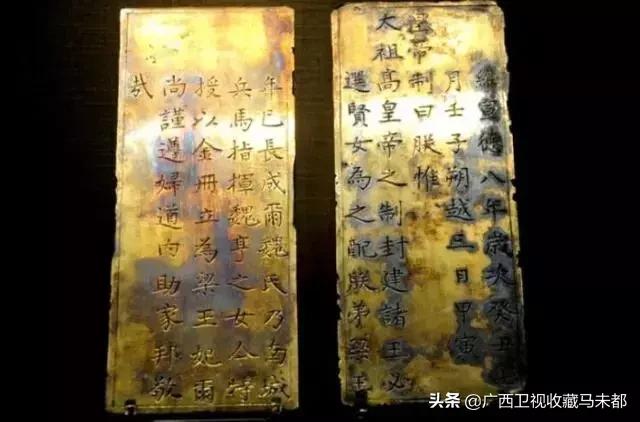 維宣德八年歲次癸丑七
月壬子朔越三日甲寅
皇帝制曰朕惟
太祖高皇帝之制封建諸王必
選賢女為之配朕弟梁王
年已長成爾魏氏乃南城
兵馬指揮魏亨之女今特
授以金冊立為梁王妃爾
尚謹遵婦道內助家邦敬
哉
头条@广西卫视收藏马未都